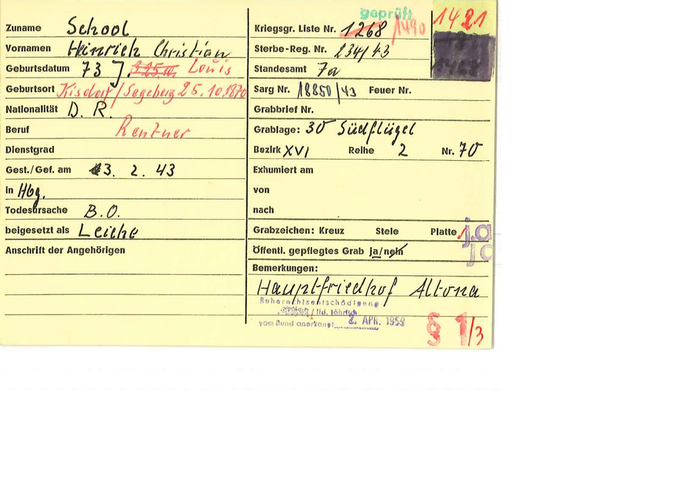 geprüft
1421
Zuname School
Kriegsgr. Liste Nr. 1268 1490
Vornamen Heinrich Christian
Sterbe-Reg. Nr. 234/43
Geburtsdatum 73 J. Louis
Standesamt 7a
Geburtsort Kisdorf/Segeberg 25.10.1870
Sarg Nr. 18850/43 Feuer Nr.
Nationalität D. R.
Grabbrief Nr.
Beruf Rentner
Grablage: 30 Südflügel
Dienstgrad
Bezirk XVI Reihe 2 Nr. 70
Gest./Gef. am 3. 2. 43
Exhumiert am
in Hbg.
von
Todesursache B.O.
nach
beigesetzt als Leiche
Grabzeichen: Kreuz Stele Platte ja
Anschrift der Angehörigen
Öffentl. gepflegtes Grab ja/nein ja
Bemerkungen:
Hauptfriedhof Altona
Ruherechtsentschädigung
/ lfd. jährlich
vom Bund anerkannt 2. APR. 1959
§ 1/3